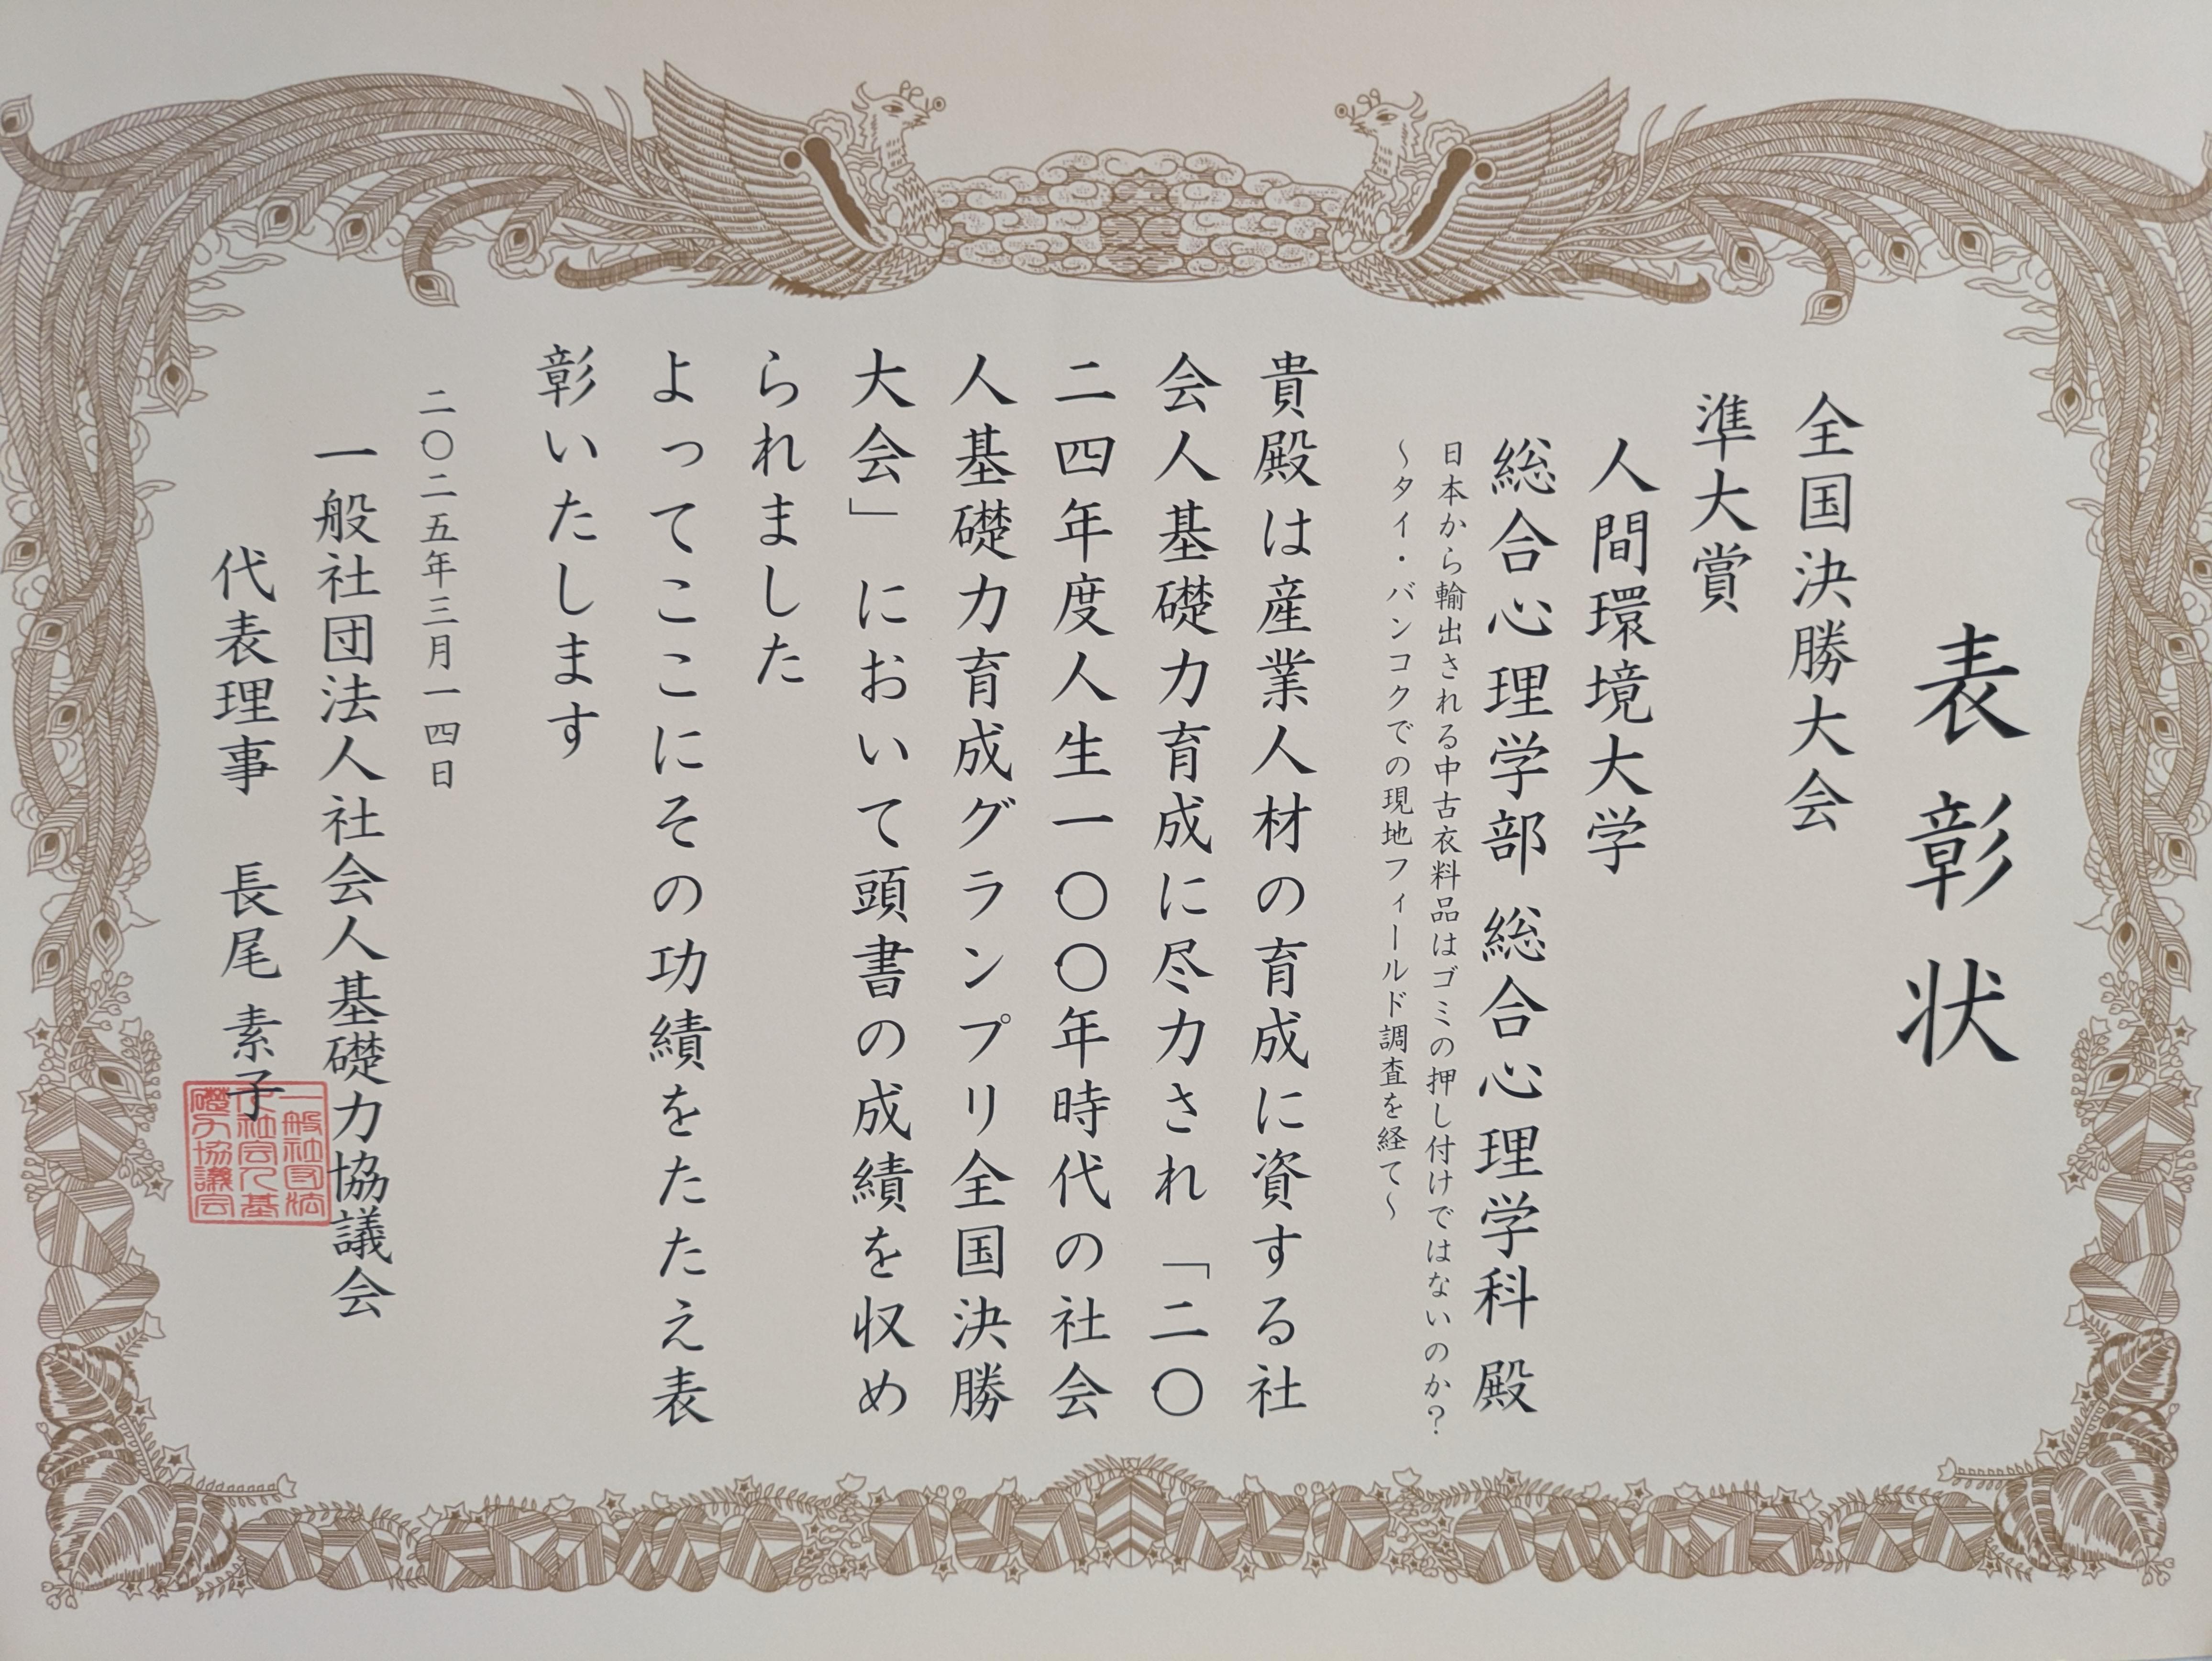 表彰状
全国決勝大会
準大賞
人間環境大学
総合心理学部 総合心理学科 殿
日本から輸出される中古衣料品はゴミの押し付けではないのか?
～タイ・バンコクでの現地フィールド調査を経て～
貴殿は産業人材の育成に資する社
会人基礎力育成に尽力され「二〇
二四年度人生一〇〇年時代の社会
人基礎力育成グランプリ全国決勝
大会」において頭書の成績を収め
られました
よってここにその功績をたたえ表
彰いたします
二〇二五年三月一四日
一般社団法人社会人基礎力協議会
代表理事 長尾 素子
一般社団法
人社会人基
礎力協議会